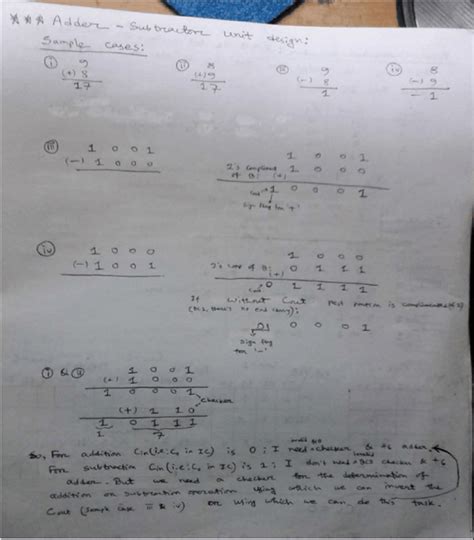 *** Adder - Subtractor unit design:
Sample cases:
(i) 9 (ii) 8 (iii) 9 (iv) 8
(+) 8 (+) 9 (-) 8 (-) 9
17 17 1 -1
(iii) 1 0 0 1 1 0 0 1
(-) 1 0 0 0 2's complement of B: (+) 1 0 0 0
Cout 1 0 0 0 1
Sign flag for '+'
(iv) 1 0 0 0 1 0 0 0
(-) 1 0 0 1 2's of B: (+) 0 1 1 1
Cout 0 1 1 1 1
If without Cout rest is
(there's no end carry):
0 0 0 1
Sign flag
for '-'
(i) & (ii) 1 0 0 1
(+) 1 0 0 0
1 0 0 0 1
checker
(+) 1 1 0
1 0 1 1 1
1 7
So, For addition Cin (i.e: C0 in IC) is 0; I need checker & +6 adder.
For subtraction Cin (i.e: C0 in IC) is 1; I don't need checker & +6
adder. But we need a checker for the determination of
addition or subtraction operation using which we can invert the
Cout (sample case iii & iv) or using which we can do this task.